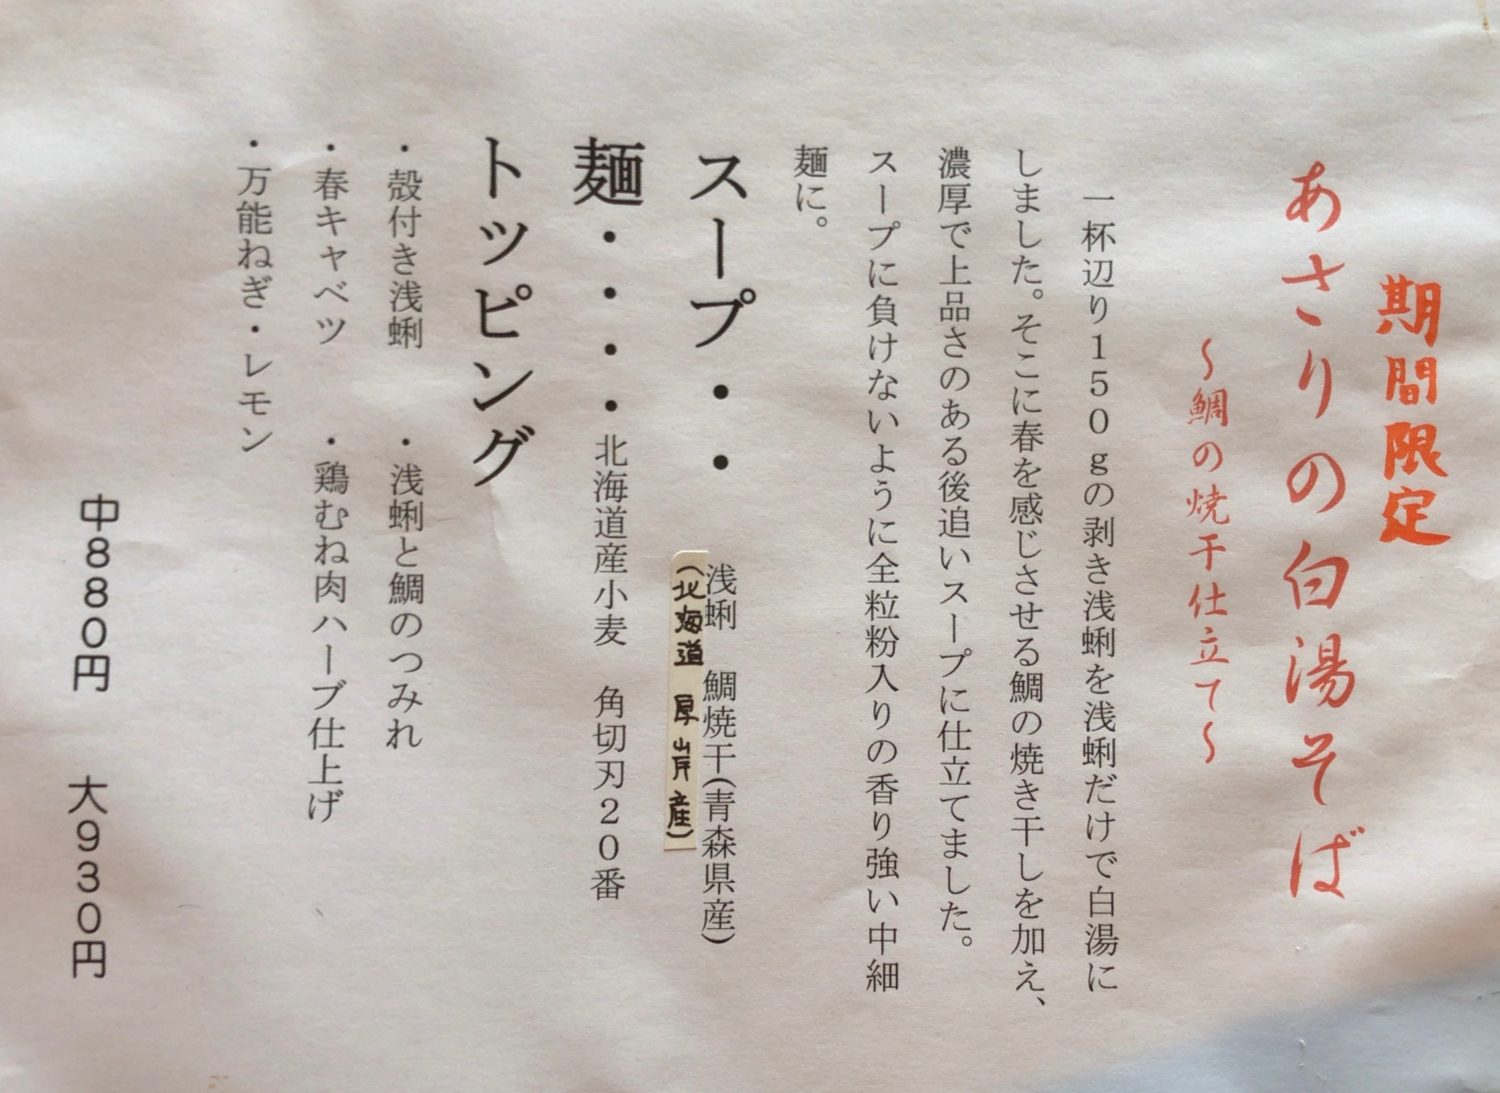 期間限定
あさりの白湯そば
～鯛の焼干仕立て～
一杯辺り１５０ｇの剥き浅蜊を浅蜊だけで白湯に
しました。そこに春を感じさせる鯛の焼き干しを加え、
濃厚で上品さのある後追いスープに仕立てました。
スープに負けないように全粒粉入りの香り強い中細
麺に。
スープ・・浅蜊　鯛焼干(青森県産)
(北海道 厚岸産)
麺・・・・北海道産小麦　角切刃２０番
トッピング
・殻付き浅蜊　・浅蜊と鯛のつみれ
・春キャベツ　・鶏むね肉ハーブ仕上げ
・万能ねぎ・レモン
中８８０円　大９３０円